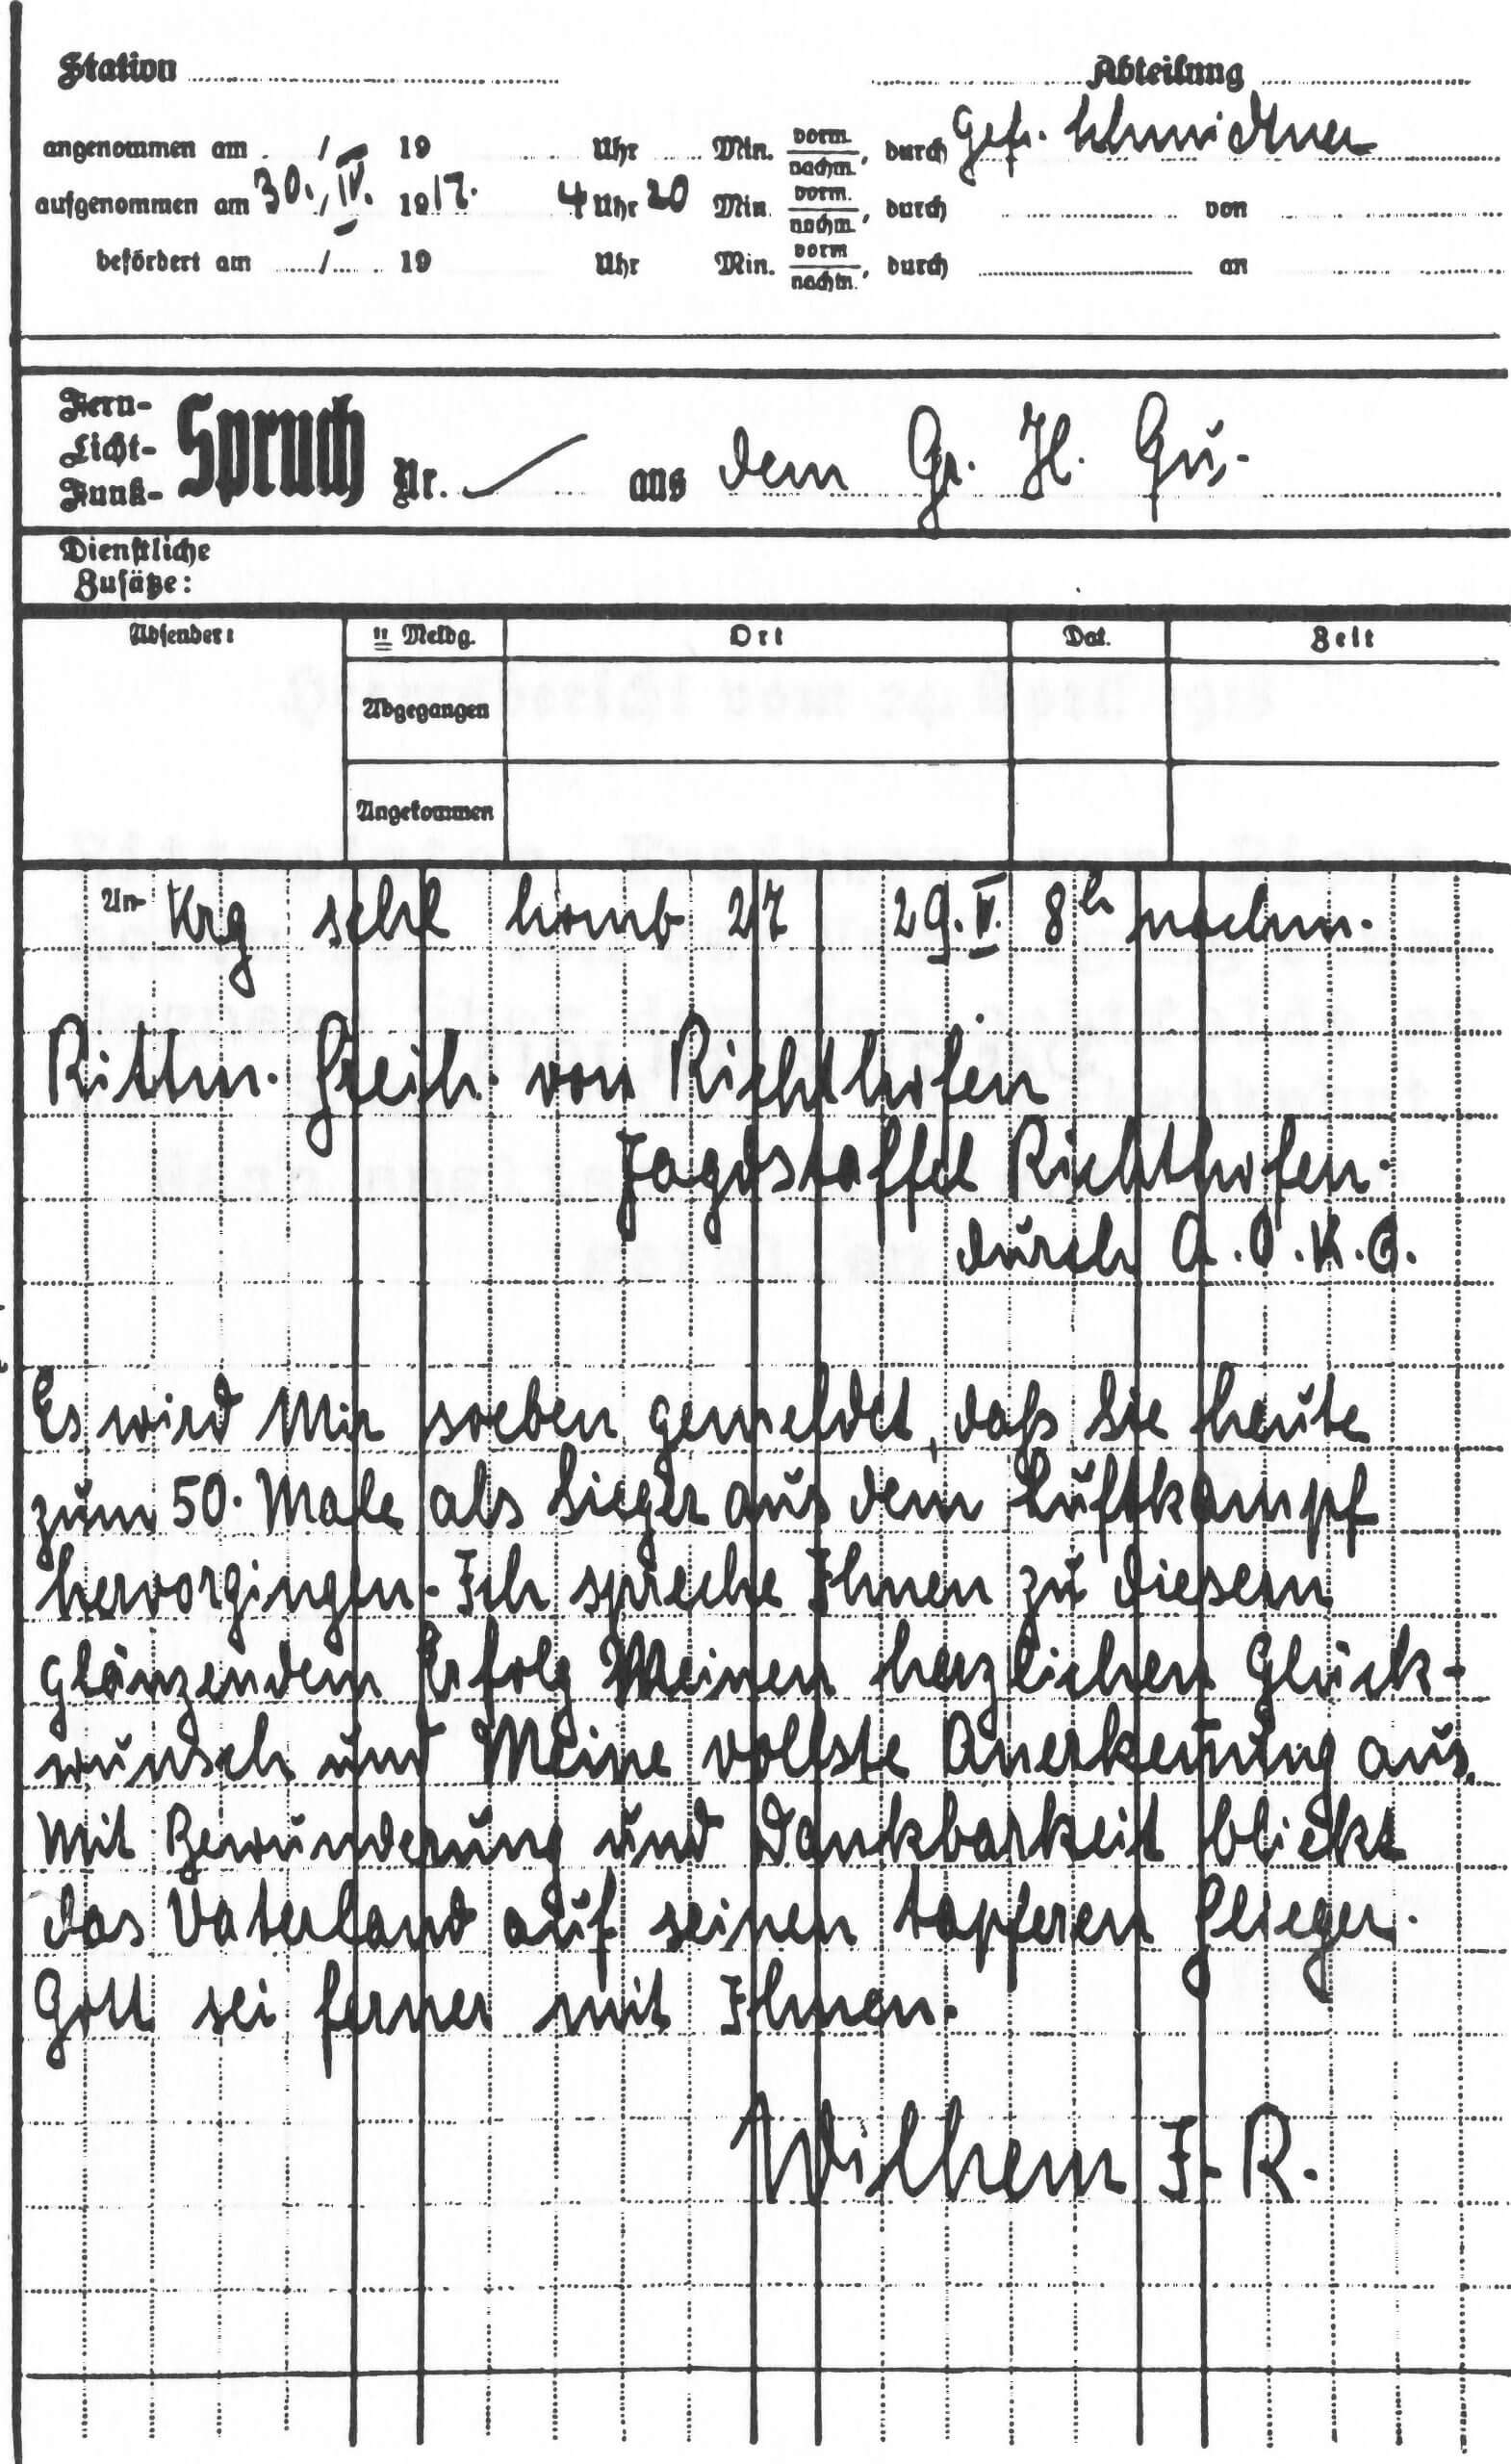 Station Abteilung
angenommen am / 19 Uhr Min. vorm. nachm., durch Gefr. Schmidtner
aufgenommen am 30. / IV. 1917. 4 Uhr 20 Min. vorm. nachm., durch von
befördert am / 19 Uhr Min. vorm. nachm., durch an
Fern-
Licht-
Funk-
Spruch Nr. aus dem Gr. H. Qu.
Dienstliche
Zusätze:
Absender: Meldg. Ort Dat. Zeit
Abgegangen
Angekommen
An Krg schl homb 27 29. IV. 8h nachm.
Rittm. Freih. von Richthofen
Jagdstaffel Richthofen.
durch A.O.K.6.
Es wird Mir soeben gemeldet, daß Sie heute
zum 50. Male als Sieger aus dem Luftkampf
hervorgingen. Ich spreche Ihnen zu diesem
glänzendem Erfolg Meinen herzlichen Glück-
wunsch und Meine vollste Anerkeñung aus.
Mit Bewunderung und Dankbarkeit blickt
das Vaterland auf seinen tapferen Flieger.
Gott sei ferner mit Ihnen.
Wilhem I. R.